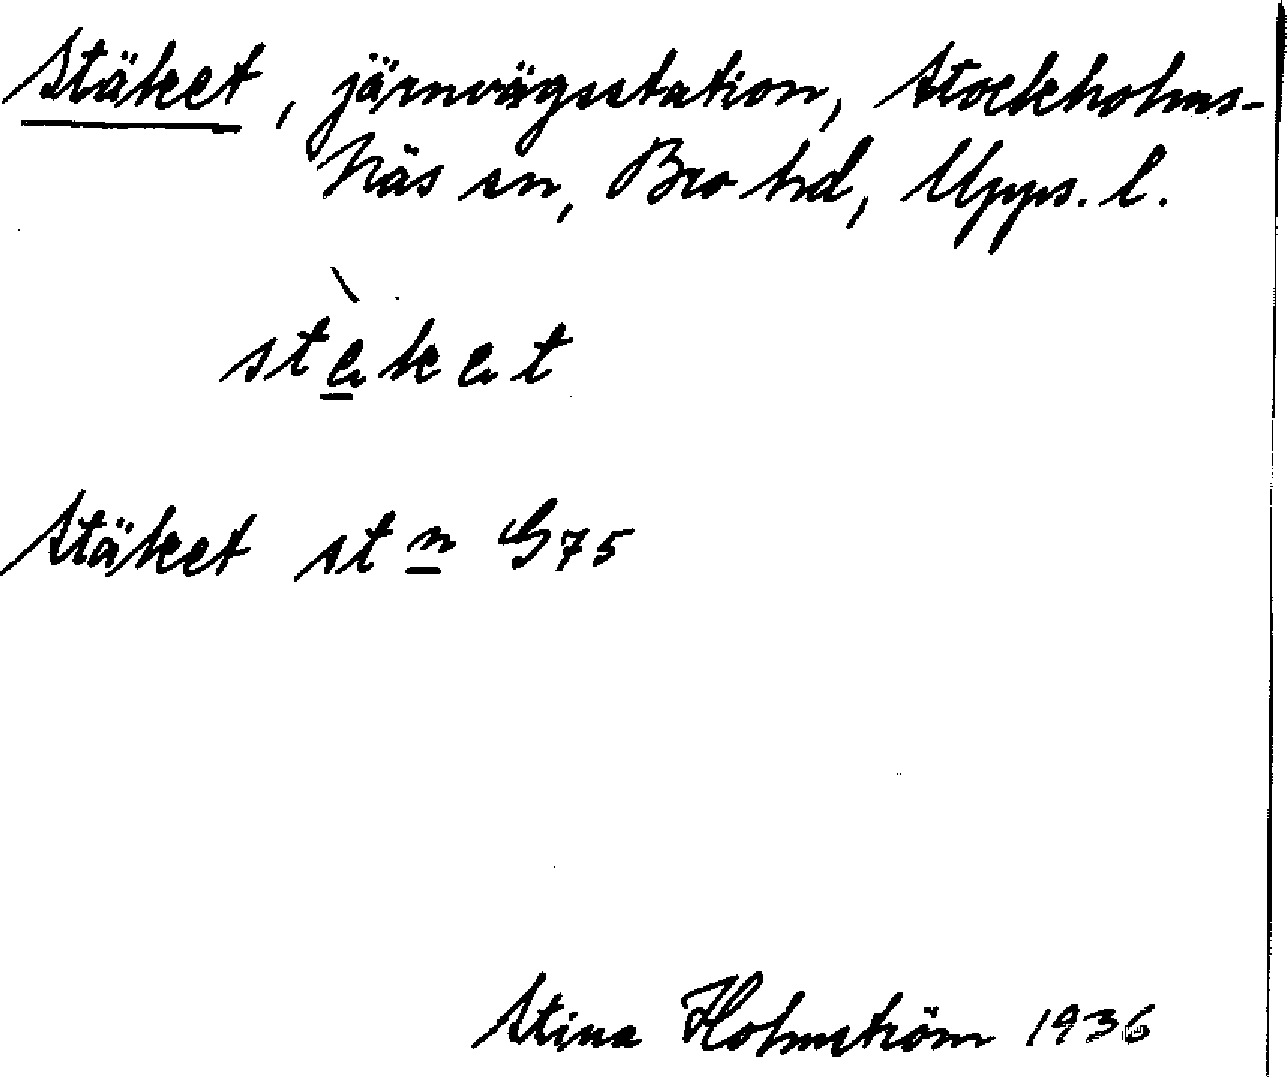 Stäket, järnvägsstation, Stockholms-
Näs sn, Bro hd, Upps. l.
stèket
Stäket st n G75
Stina Holmström 1936